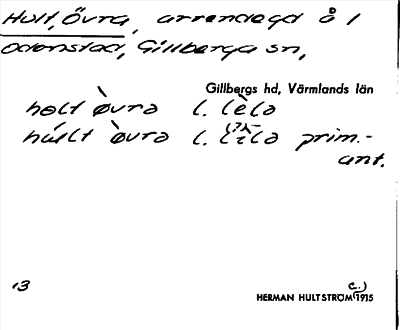 Hult, Övra, arrendegd å 1
Odenstad, Gillberga sn,
Gillbergs hd, Värmlands län
hølt
l.
l. prim.-
ant.
13
c.)
HERMAN HULTSTRÖM 1915